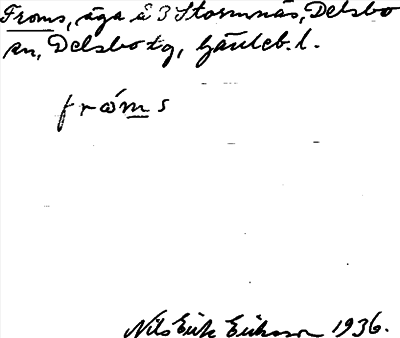 Froms, äga å 3 Stormnäs, Delsbo
sn, Delsbo tg, Gävleb. l.
fråms
Nils Erik Eriksson 1936.